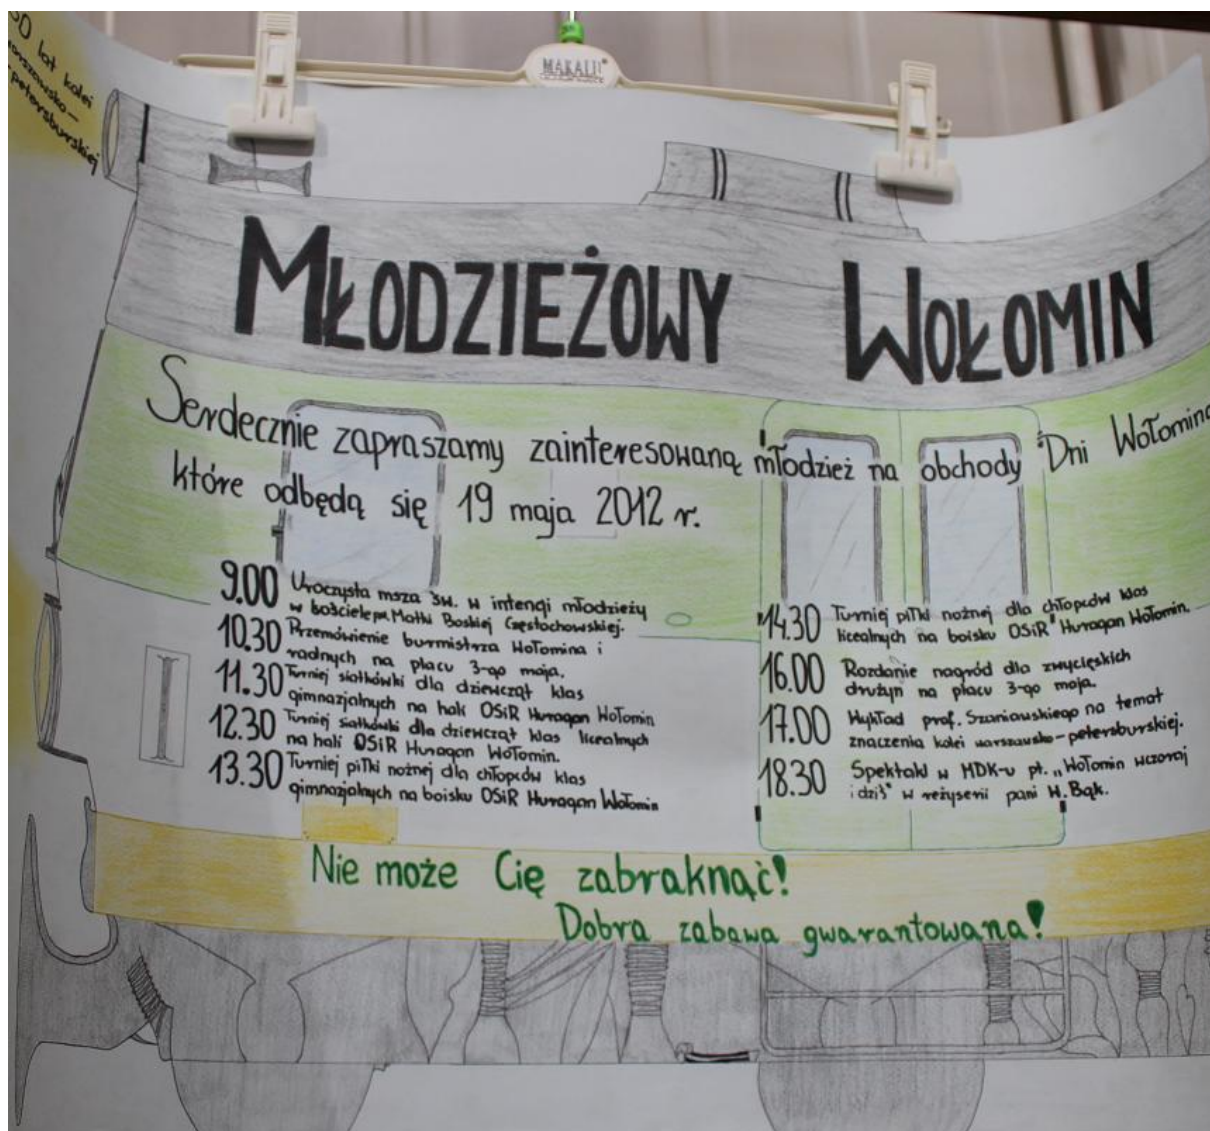 lat kolei
warszawsko-
petersburskiej
MAKALU
MŁODZIEŻOWY WOŁOMIN
Serdecznie zapraszamy zainteresowaną młodzież na obchody "Dni Wołomina
które odbędą się 19 maja 2012 r.
9.00 Uroczysta msza św. w intencji młodzieży
w kościele p.w. Matki Boskiej Częstochowskiej.
10.30 Przemówienie burmistrza Wołomina i
radnych na placu 3-go maja.
11.30 Turniej siatkówki dla dziewcząt klas
gimnazjalnych na hali OSiR Huragan Wołomin
12.30 Turniej siatkówki dla dziewcząt klas licealnych
na hali OSiR Huragan Wołomin.
13.30 Turniej piłki nożnej dla chłopców klas
gimnazjalnych na boisku OSiR Huragan Wołomin
14.30 Turniej piłki nożnej dla chłopców klas
licealnych na boisku OSiR Huragan Wołomin.
16.00 Rozdanie nagród dla zwycięskich
drużyn na placu 3-go maja.
17.00 Wykład prof. Szaniawskiego na temat
znaczenia kolei warszawsko-petersburskiej.
18.30 Spektakl w MDK-u pt. „Wołomin wczoraj
i dziś" w reżyserii pani W. Bąk.
Nie może Cię zabraknąć!
Dobra zabawa gwarantowana!